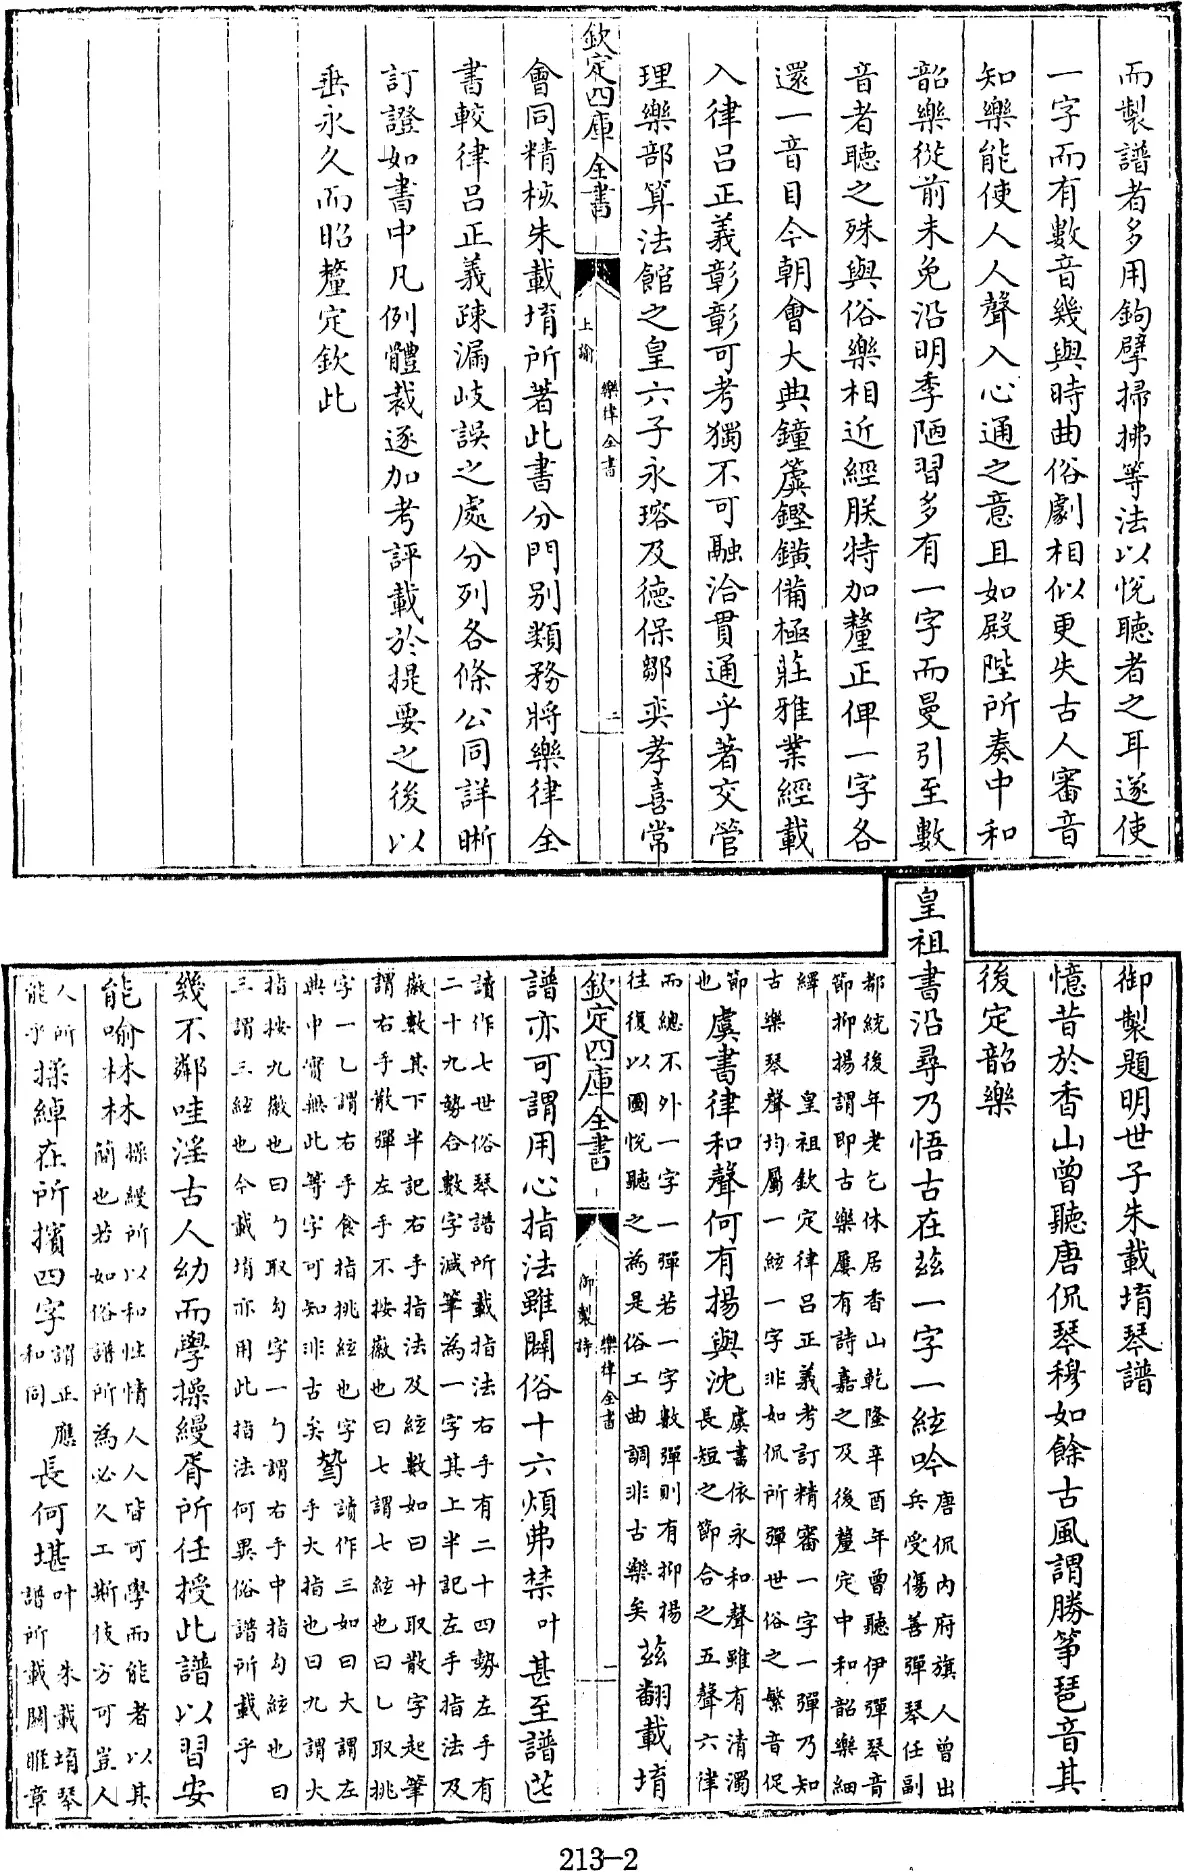 而製譜者多用鉤擘掃拂等法以悅聽者之耳遂使
一字而有數音幾與時曲俗劇相似更失古人審音
知樂能使人人聲入心通之意且如殿陛所奏中和
韶樂從前未免沿明季陋習多有一字而曼引至數
音者聽之殊與俗樂相近經朕特加釐正俾一字各
還一音目今朝會大典鐘簴鏗鏘備極莊雅業經載
入律呂正義彰彰可考獨不可融洽貫通乎著交管
理樂部算法館之皇六子永瑢及德保鄒奕孝喜常
欽定四庫全書
上諭
樂律全書
二
會同精核朱載堉所著此書分門別類務將樂律全
書較律呂正義疎漏岐誤之處分列各條公同詳晰
訂證如書中凡例體裁逐加考評載於提要之後以
垂永久而昭釐定欽此
御製題明世子朱載堉琴譜
憶昔於香山曾聽唐侃琴穆如餘古風謂勝箏琶音其
後定韶樂
皇祖書沿尋乃悟古在茲一字一絃吟
唐侃內府旗人曾出
兵受傷善彈琴任副
都統後年老乞休居香山乾隆辛酉年曾聽伊彈琴音
節抑揚謂即古樂屢有詩嘉之及後釐定中和韶樂細
繹皇祖欽定律呂正義考訂精審一字一彈乃知
古樂琴聲均屬一絃一字非如侃所彈世俗之繁音促
節
也
虞書律和聲何有揚與沈
虞書依永和聲雖有清濁
長短之節合之五聲六律
而總不外一字一彈若一字數彈則有抑揚
往復以圖悅聽之為是俗工曲調非古樂矣
茲翻載堉
欽定四庫全書
御製詩
樂律全書
二
譜亦可謂用心指法雖闢俗十六煩弗禁
叶
甚至譜茫
讀作七世俗琴譜所載指法右手有二十四勢左手有
二十九勢合數字減筆為一字其上半記左手指法及
徽數其下半記右手指法及絃數如曰廾取散字起筆
謂右手散彈左手不按徽也曰七謂七絃也曰乚取挑
字一乚謂右手食指挑絃也字
典中實無此等字可知非古矣
讀作三如曰大謂左
手大指也曰九謂大
指按九徽也曰勹取勾字一勹謂右手中指勾絃也曰
三謂三絃也今載堉亦用此指法何異俗譜所載乎
幾不鄰哇淫古人幼而學操縵胥所任授此譜以習安
能喻林林
操縵所以和性情人人皆可學而能者以其
簡也若如俗譜所為必久工斯伎方可豈人
人所
能乎
操縵在所擯四字
謂正應
和同
長何堪
叶朱載堉琴
譜所載關雎章
213-2